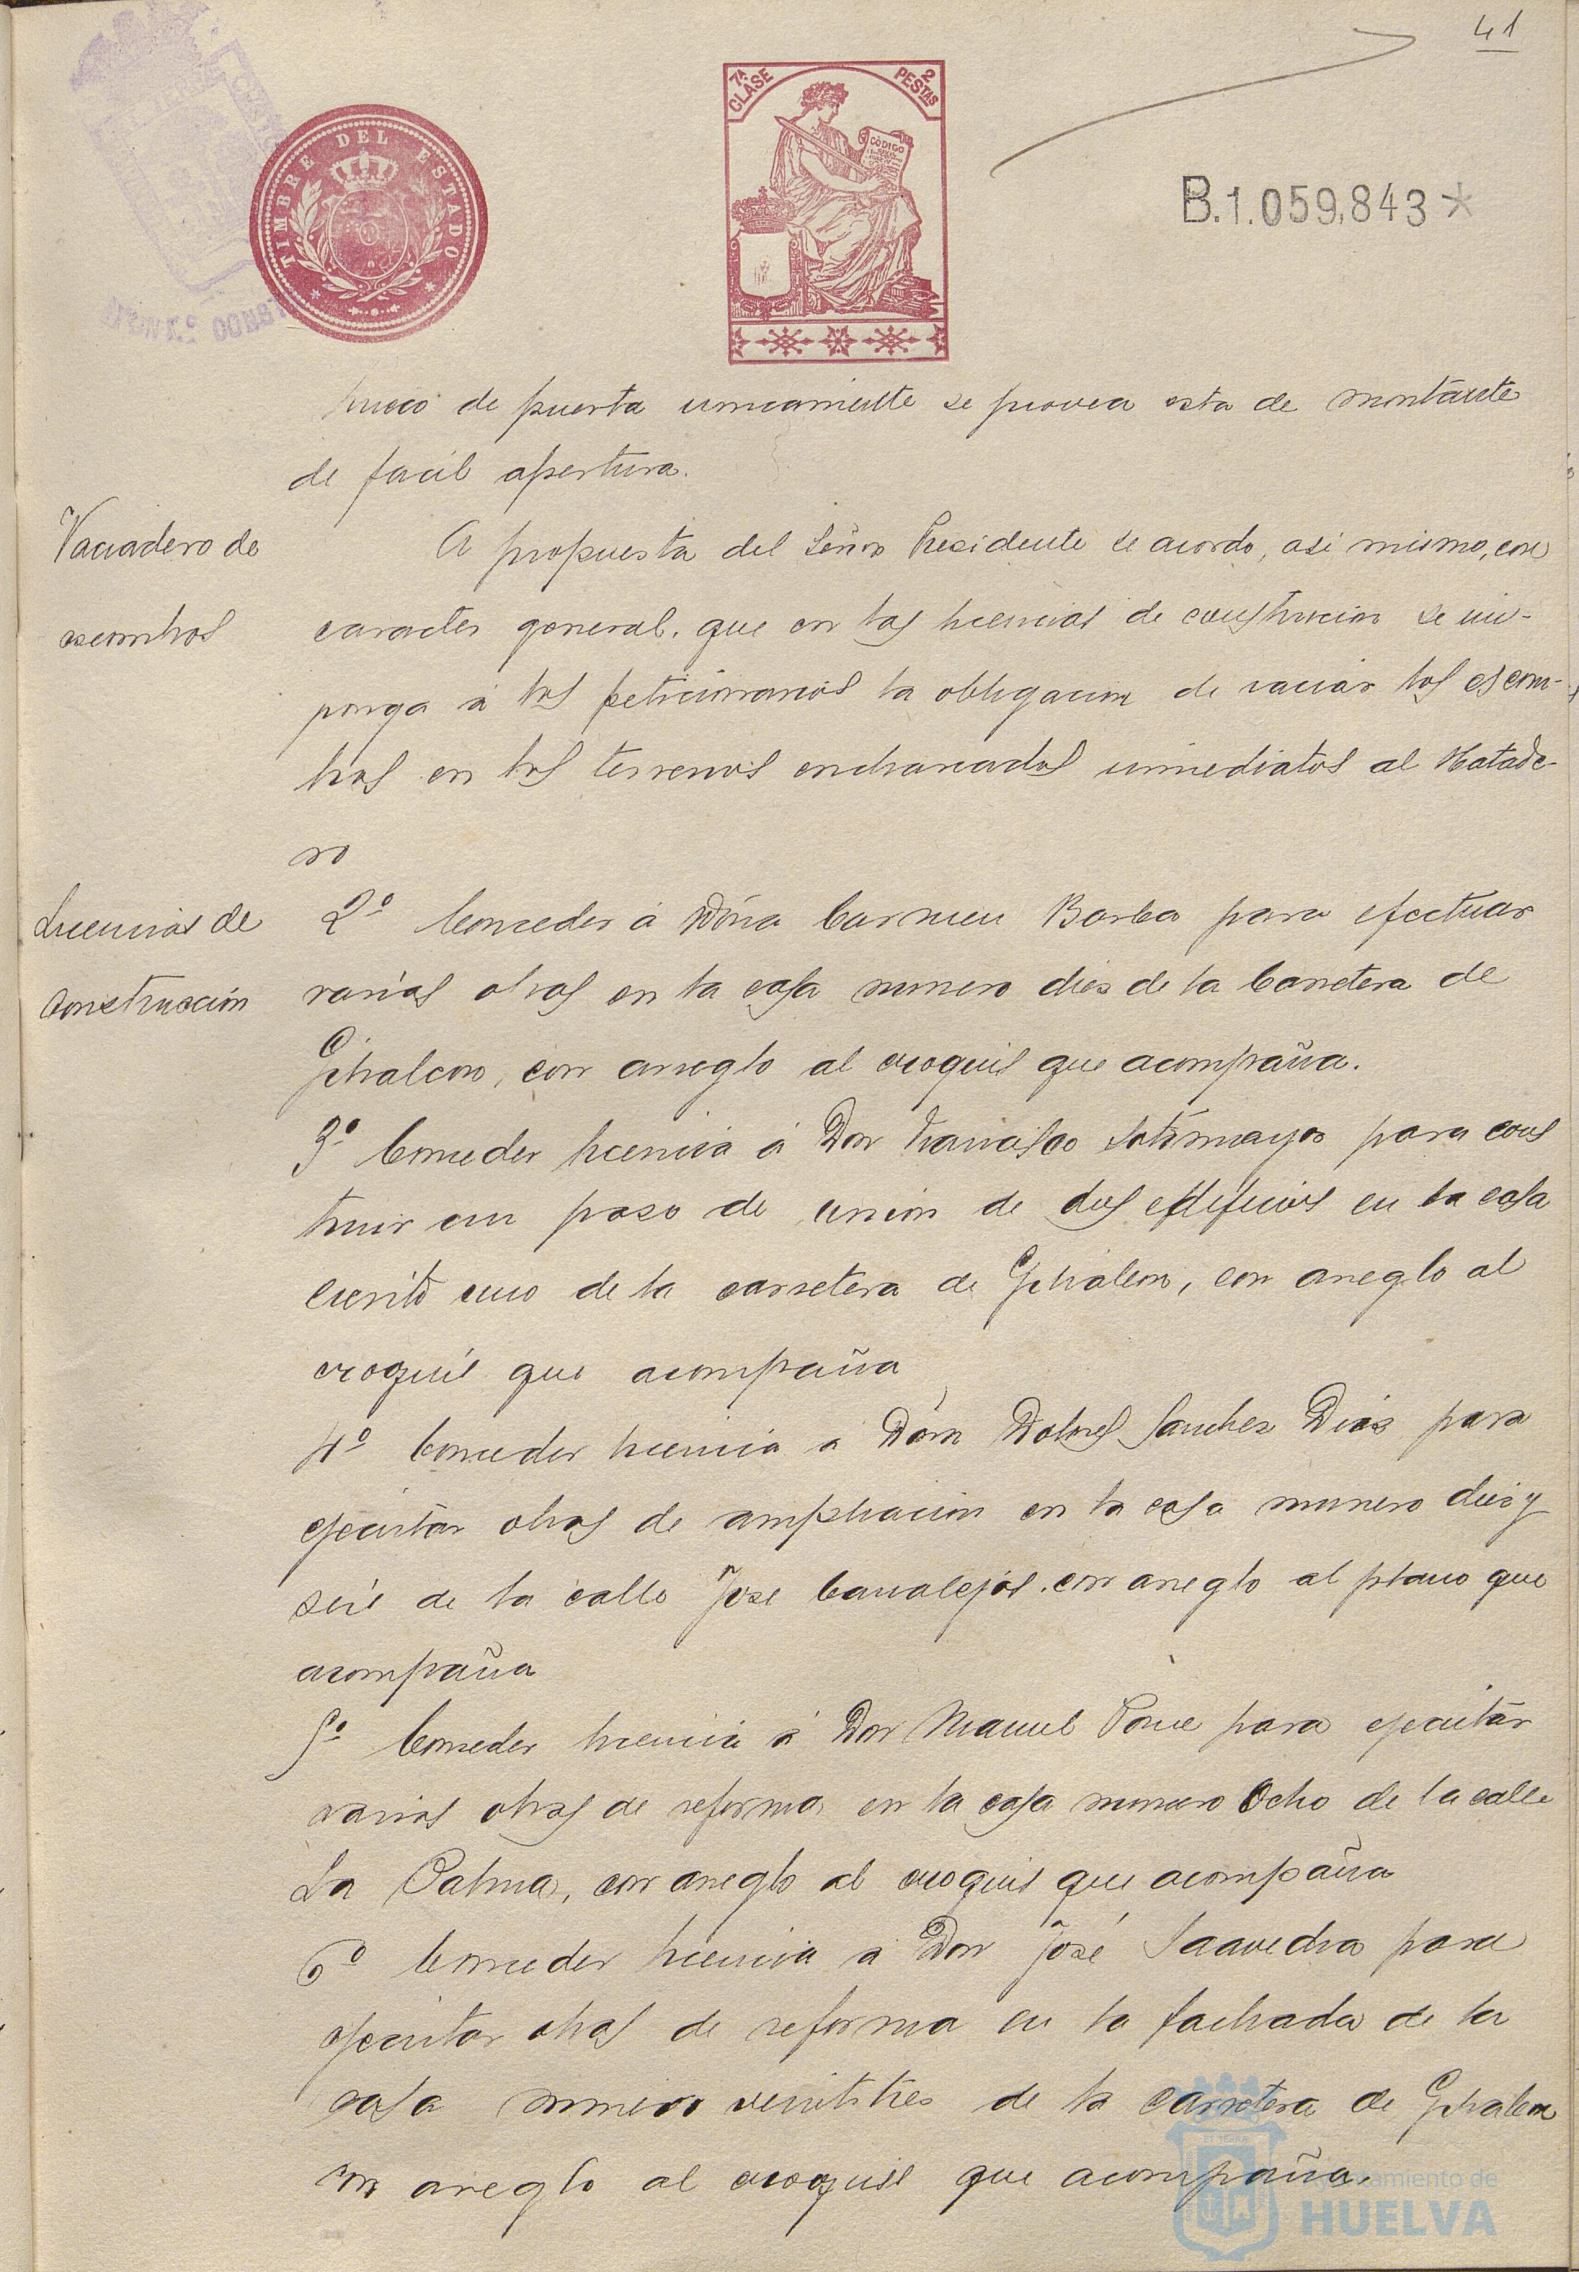 41
7ª CLASE 2 PESTAS
CÓDIGO
TIMBRE DEL ESTADO
B.1.059,843*
hueco de puerta unicamente se provea esta de montante
de facil apertura.
Vaciadero de
escombros
A propuesta del Señor Presidente se acordo, asi mismo, con
caracter general, que en las licencias de construcion se im-
ponga á los peticionarios la obligacion de vaciar los escom-
bros en los terrenos encharcados inmediatos al Matade-
ro
Licencias de
construcción
2º Conceder á Dóña Carmen Borba para efectuar
varias obras en la casa numero dies de la Carretera de
Gibraleon, con arreglo al croquis que acompaña.
3º Conceder licencia á Don Francisco Sotomayor para cons
truir un paso de union de dos edificios en la casa
ciento uno de la carretera de Gibraleon, con arreglo al
croquis que acompaña
4º Conceder licencia a Dóña Dolores Sanchez Dias para
ejecutar obras de ampliacion en la casa numero dies y
seis de la calle Jose Canalejas, con arreglo al plano que
acompaña
5º Conceder licencia á Don Manuel Ponce para ejecutar
varias obras de reforma en la casa numero Ocho de la calle
La Palma, con arreglo al croquis que acompaña
6º Conceder licencia a Don José Saavedra para
ejecutar obras de reforma en la fachada de la
casa numero veintitres de la carretera de Gibraleon
con arreglo al croquis que acompaña.
Ayuntamiento de
HUELVA